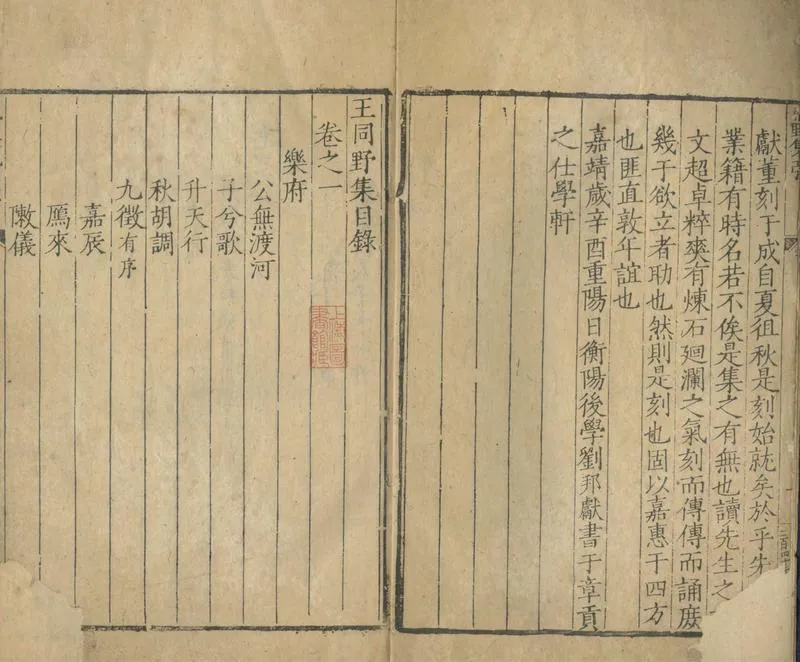 獻董刻于成自夏徂秋是刻始就矣於乎先
業籍有時名若不俟是集之有無也讀先生之
文超卓粹爽有煉石廻瀾之氣刻而傳傳而誦庶
幾于欲立者助也然則是刻也固以嘉惠于四方
也匪直敦年誼也
嘉靖歲辛酉重陽日衡陽後學劉邦獻書于章貢
之仕學軒
王同野集目錄
卷之一
樂府
公無渡河
子兮歌
升天行
秋胡調
九徵有序
嘉辰
鴈來
陳儀
上海圖
書館藏